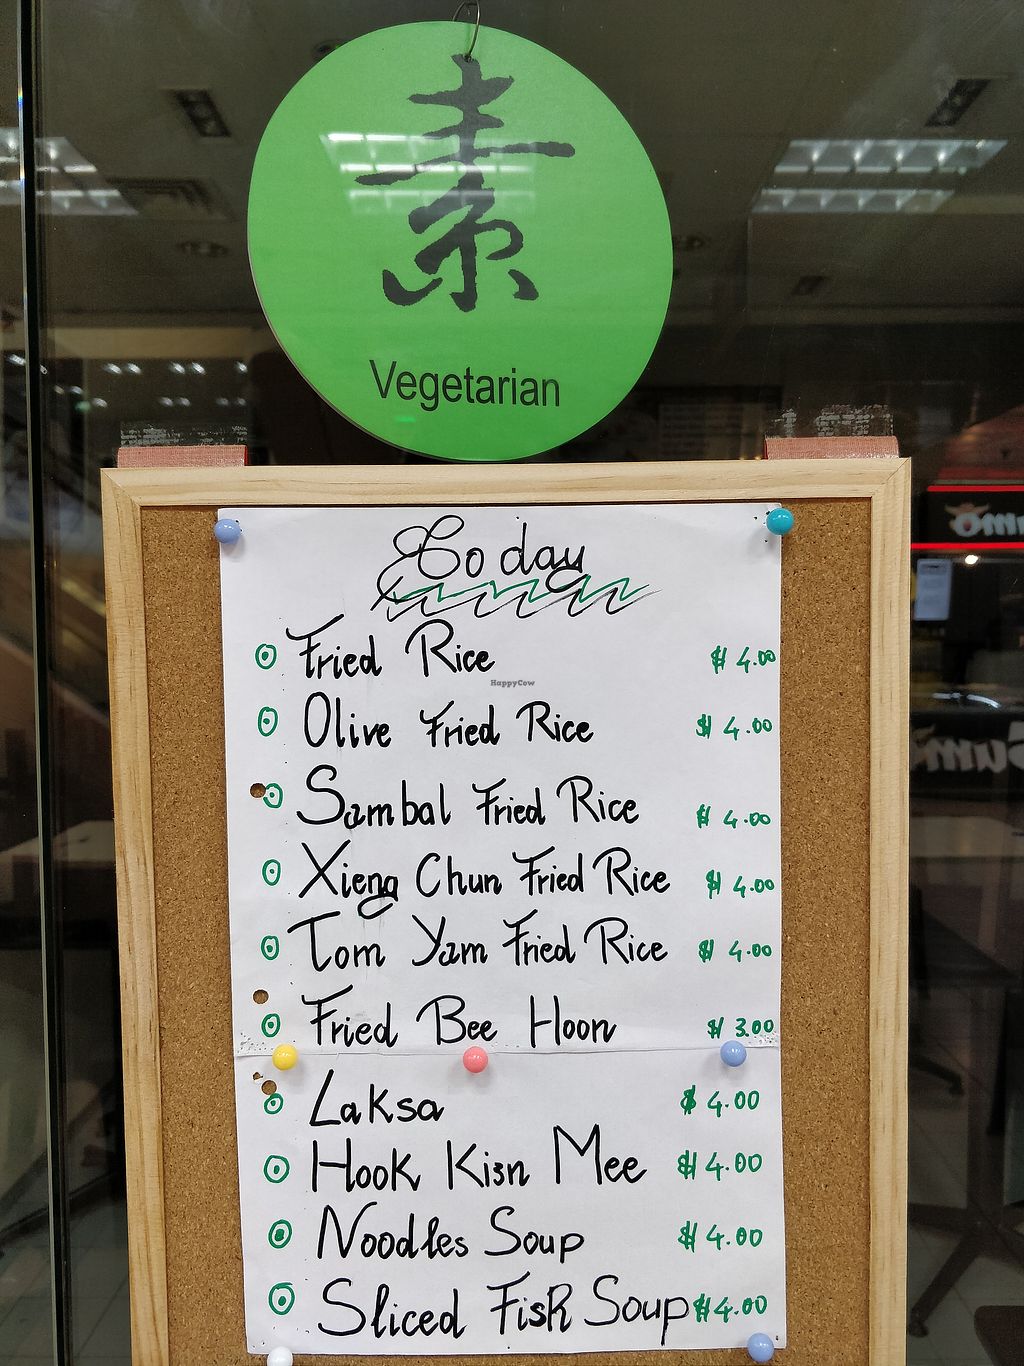 素
Vegetarian
Today
Fried Rice $ 4.00
HappyCow
Olive Fried Rice $ 4.00
Sambal Fried Rice $ 4.00
Xieng Chun Fried Rice $ 4.00
Tom Yam Fried Rice $ 4.00
Fried Bee Hoon $ 3.00
Laksa $ 4.00
Hook Kien Mee $ 4.00
Noodles Soup $ 4.00
Sliced Fish Soup $4.00